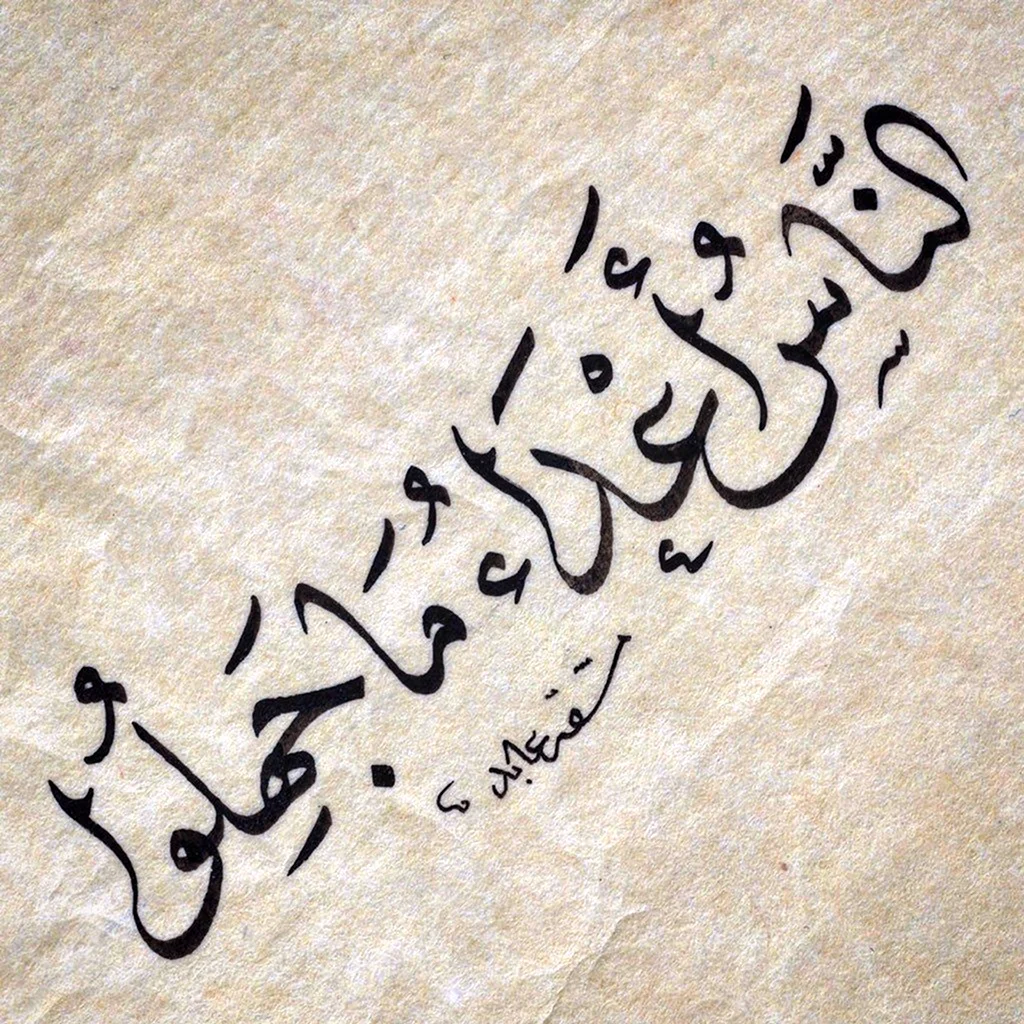 النَّاسُ أَعْدَاءُ مَا جَهِلُوا